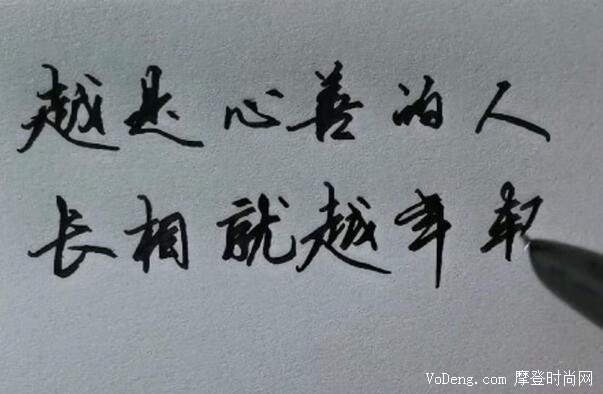 越是心善的人
长相就越年轻
VoDeng.com 摩登时尚网